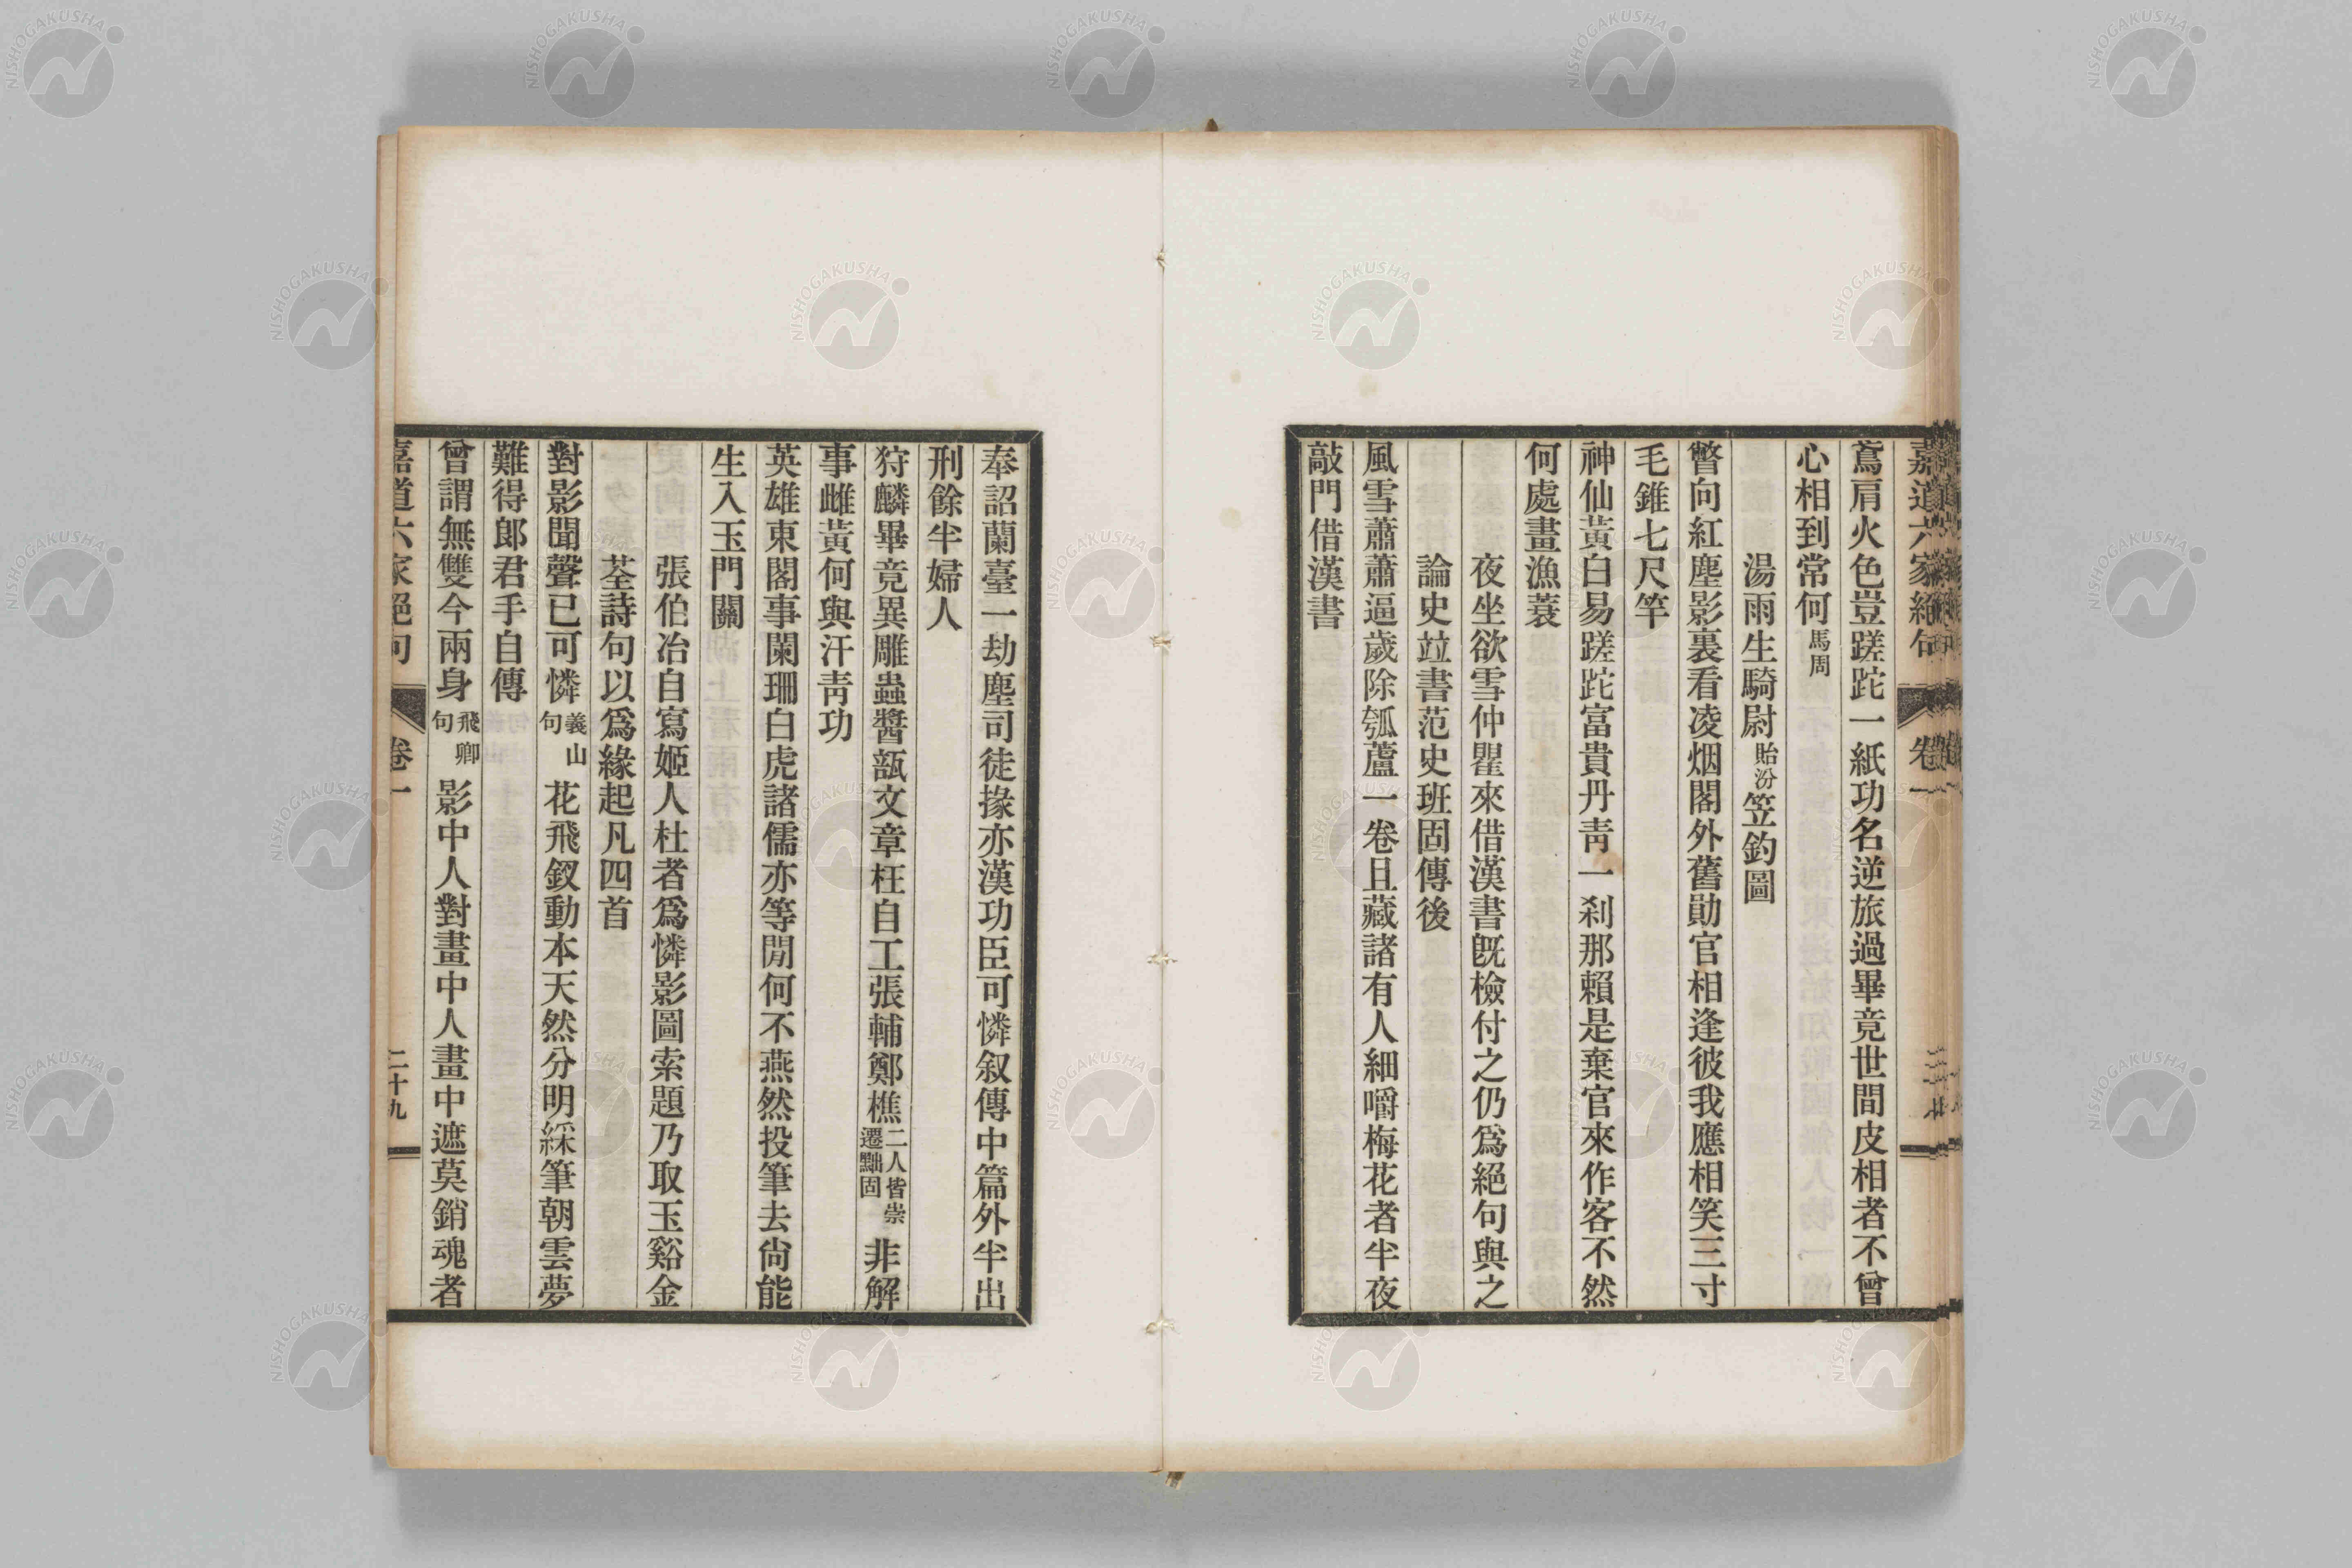 嘉道六家絕句　卷一
鳶肩火色豈蹉跎一紙功名逆旅過畢竟世間皮相者不曾
心相到常何馬周
湯雨生騎尉貽汾笠釣圖
瞥向紅塵影裏看凌烟閣外舊勛官相逢彼我應相笑三寸
毛錐七尺竿
神仙黃白易蹉跎富貴丹靑一刹那賴是棄官來作客不然
何處畫漁蓑
夜坐欲雪仲瞿來借漢書旣檢付之仍爲絕句與之
論史竝書范史班固傳後
風雪蕭蕭逼歲除瓠蘆一卷且藏諸有人細嚼梅花者半夜
敲門借漢書
奉詔蘭臺一劫塵司徒掾亦漢功臣可憐叙傳中篇外半出
刑餘半婦人
狩麟畢竟異雕蟲醬瓿文章枉自工張輔鄭樵二人皆崇遷黜固非解
事雌黃何與汗靑功
英雄東閣事闌珊白虎諸儒亦等閒何不燕然投筆去尙能
生入玉門關
張伯冶自寫姬人杜者爲憐影圖索題乃取玉谿金
荃詩句以爲緣起凡四首
對影聞聲已可憐義山句花飛釵動本天然分明綵筆朝雲夢
難得郞君手自傳
曾謂無雙今兩身飛卿句影中人對畫中人畫中遮莫銷魂者
嘉道六家絕句　卷一　二十九
NISHOGAKUSHA